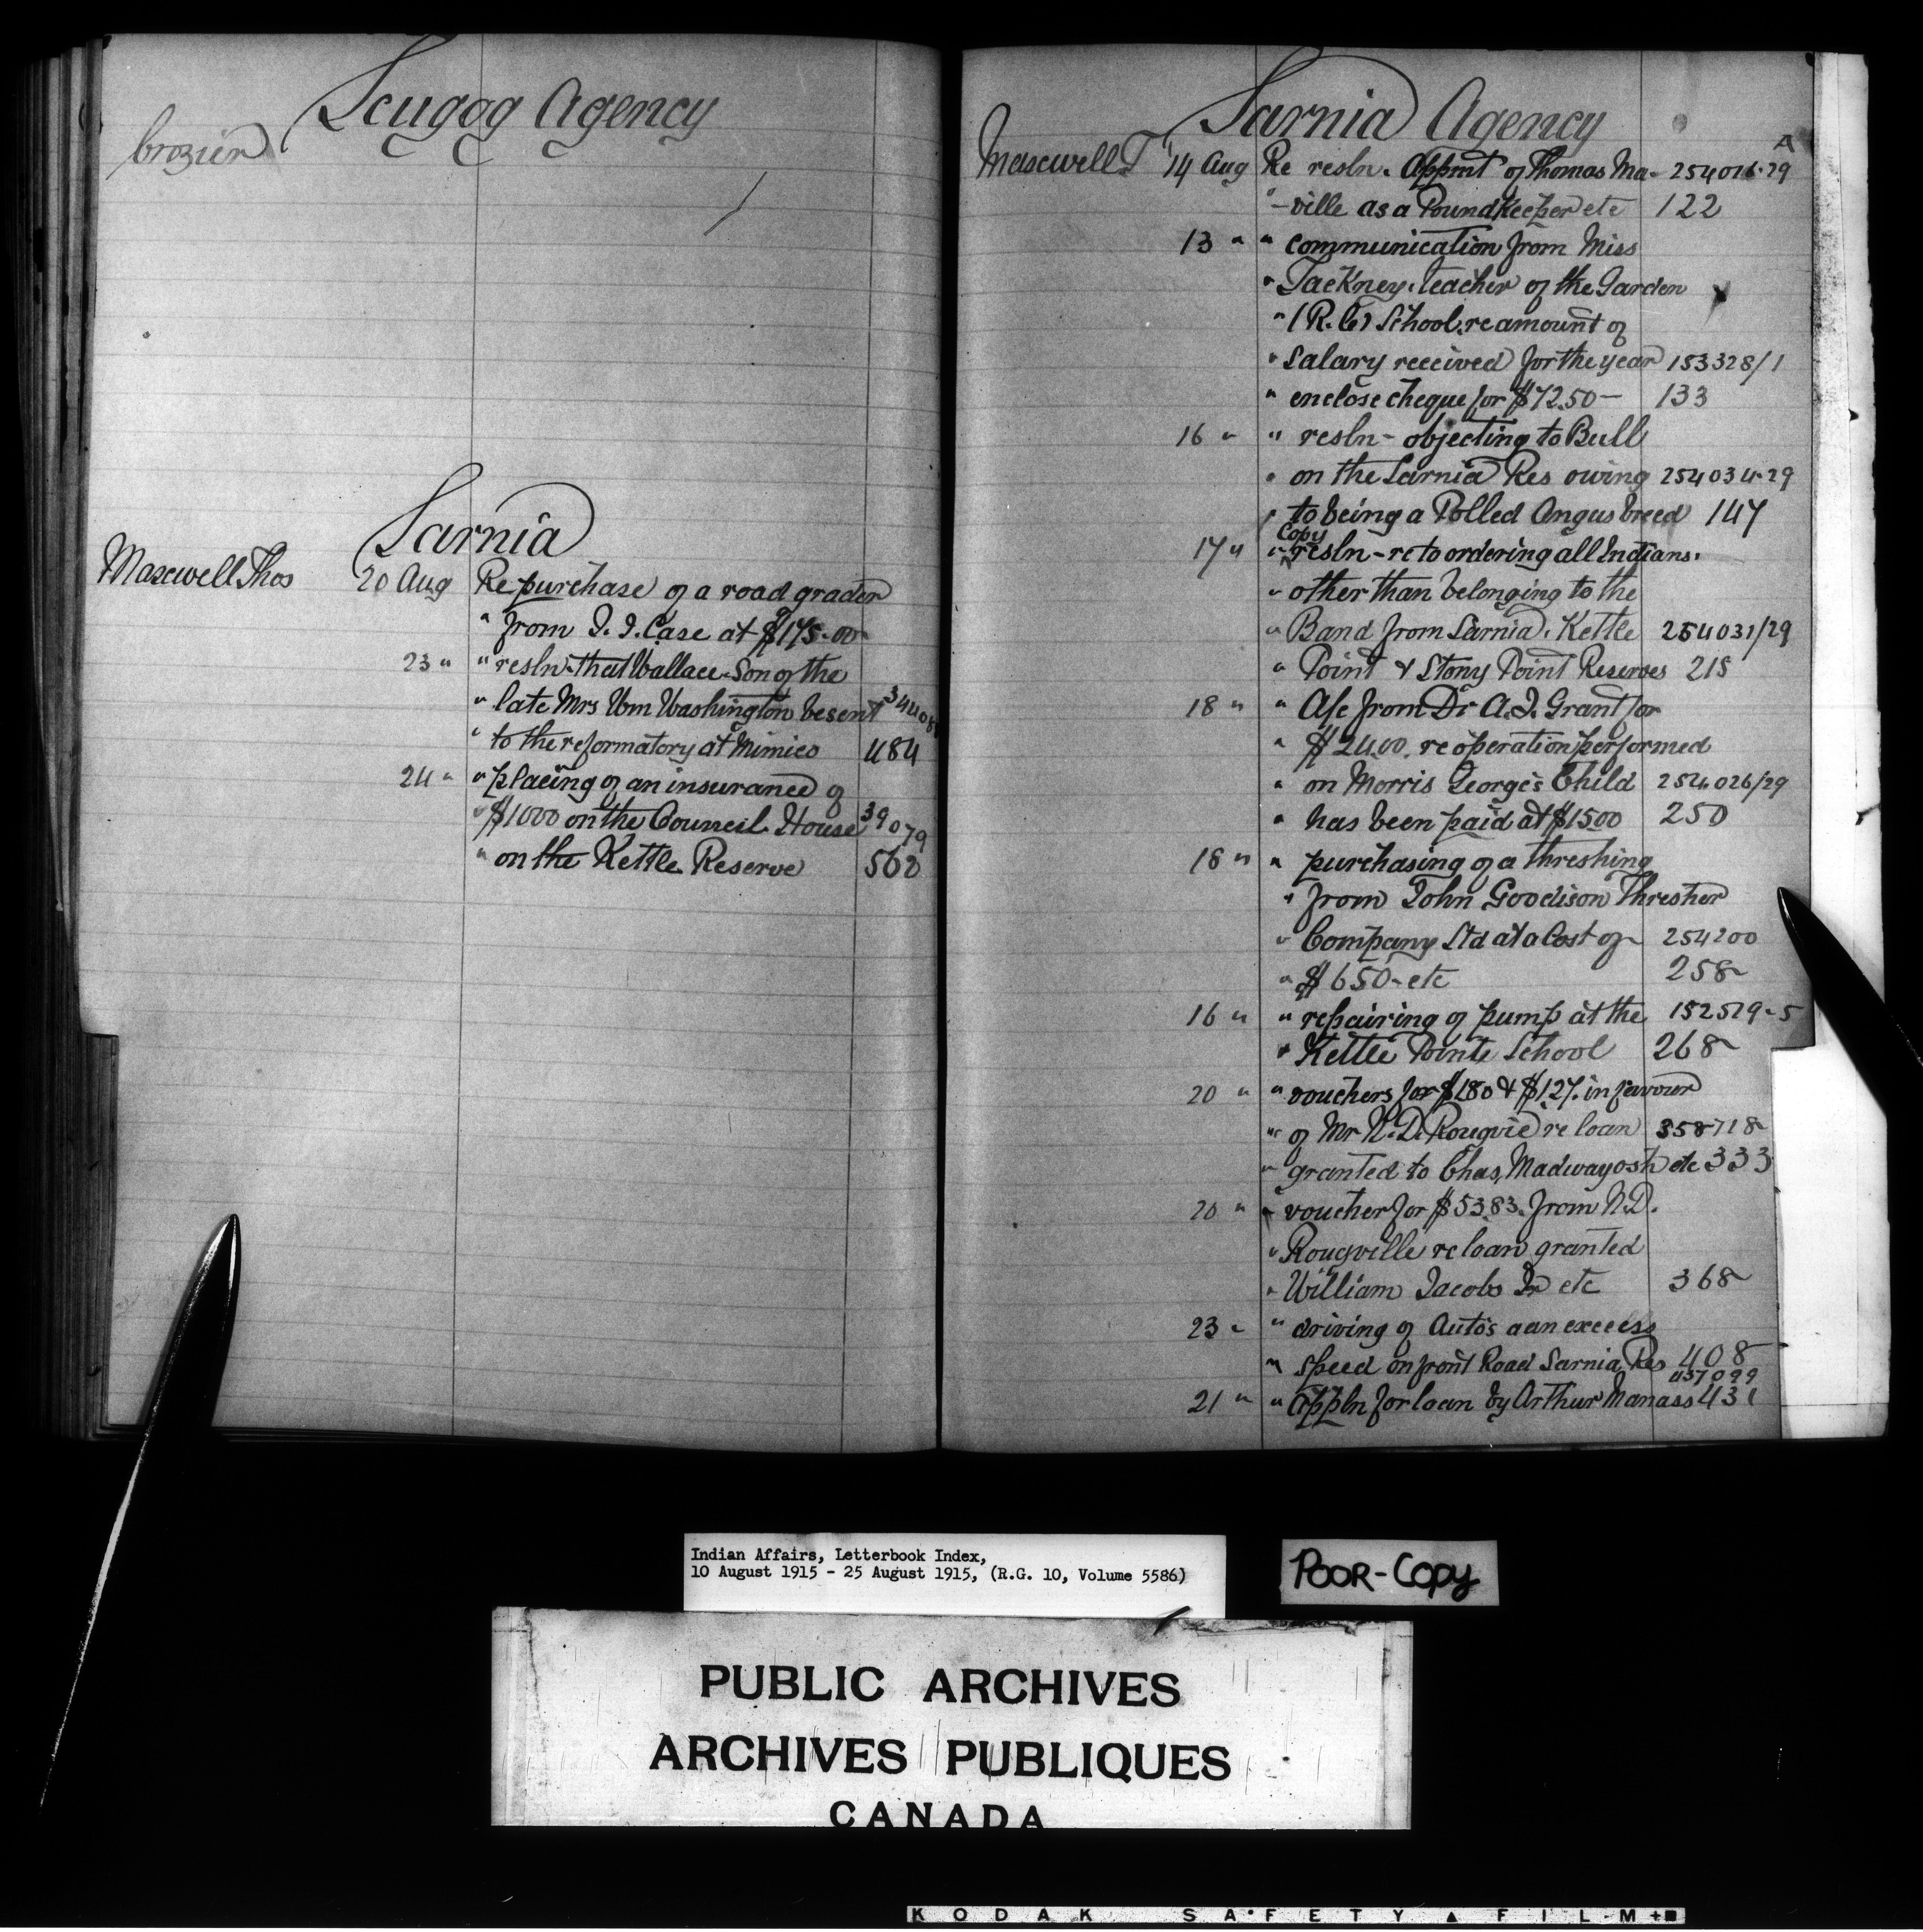 Scugog Agency
Crozier
Sarnia
Maxwell Thos 20 Aug Re purchase of a road grader
" from J. I. Case at $175.00
23 " " resln. that Wallace Son of the
" late Mrs Wm Washington be sent 34408
" to the reformatory at Mimico 484
24 " " placing of an insurance of
" $1000 on the Council House 39079
" on the Kettle Reserve 562
Sarnia Agency
Maxwell T 14 Aug Re resln. Appmt of Thomas Ma- 254026-29 A
" -ville as a Pound Keeper etc 122
13 " " communication from Miss
" Tackney, teacher of the Garden
" (R.C.) School, re amount of
" Salary received for the year 153328/1
" enclose cheque for $72.50 - 133
16 " " resln - objecting to Bull
" on the Sarnia Res owing 254034-29
" to being a Polled Angus breed 147
Copy
17 " " resln - re to ordering all Indians.
" other than belonging to the
" Band from Sarnia, Kettle 254031/29
" Point & Stony Point Reserves 215
18 " " A/c from Dr A. J. Grant for
" $24.00. re operation performed
" on Morris George's Child 254,026/29
" has been paid at $15.00 250
18 " " purchasing of a threshing
" from John Goodison Thresher
" Company Ltd at a Cost of 254200
" $650 - etc 258
16 " " repairing of pump at the 152529-5
" Kettle Pointe School 268
20 " " vouchers for $180 & $1.27. in favour
" of Mr N. D. Rougvie re loan 358718
" granted to Chas, Madwayosh etc 333
20 " " voucher for $53.83. from N.D.
" Rougville re loan granted
" William Jacobs Jr etc 368
23 " " driving of Auto's a an excess
" speed on front Road Sarnia Res 408
457099
21 " " appln for loan by Arthur Manass 431
Indian Affairs, Letterbook Index,
10 August 1915 - 25 August 1915, (R.G. 10, Volume 5586)
POOR-COPY
PUBLIC ARCHIVES
ARCHIVES PUBLIQUES
CANADA
KODAK SAFETY ▲ FILM